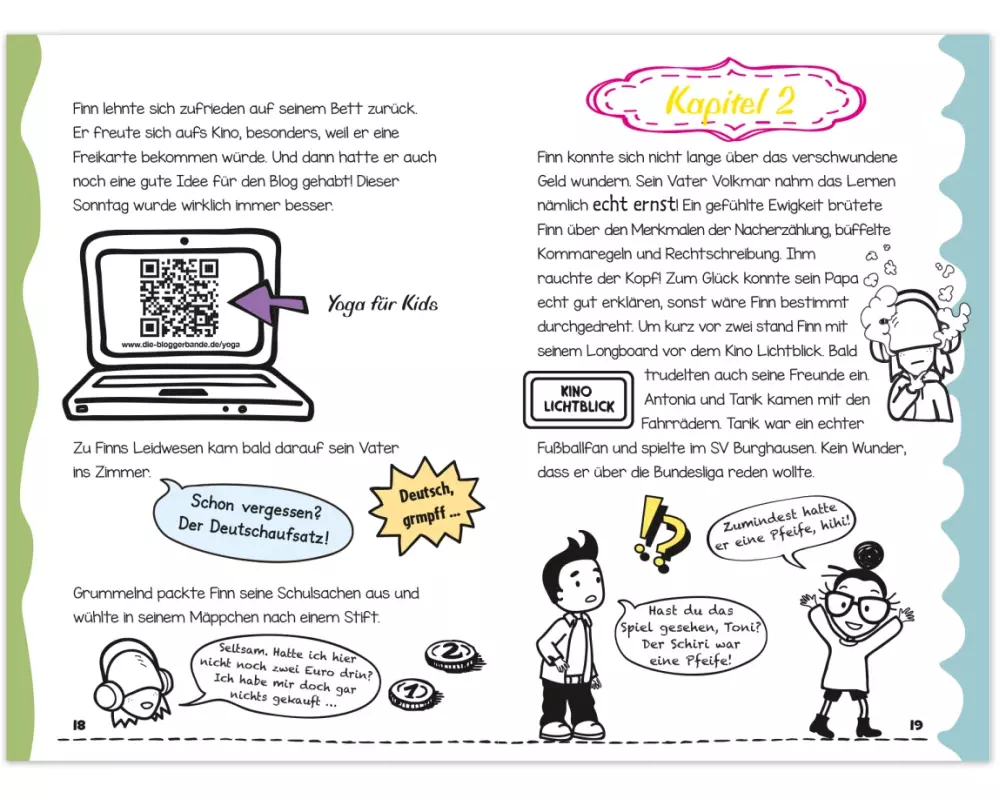 Finn lehnte sich zufrieden auf seinem Bett zurück.
Er freute sich aufs Kino, besonders, weil er eine
Freikarte bekommen würde. Und dann hatte er auch
noch eine gute Idee für den Blog gehabt! Dieser
Sonntag wurde wirklich immer besser.
www.die-bloggerbande.de/yoga
Yoga für Kids
Zu Finns Leidwesen kam bald darauf sein Vater
ins Zimmer.
Schon vergessen?
Der Deutschaufsatz!
Deutsch,
grmpff ...
Grummelnd packte Finn seine Schulsachen aus und
wühlte in seinem Mäppchen nach einem Stift.
Seltsam. Hatte ich hier
nicht noch zwei Euro drin?
Ich habe mir doch gar
nichts gekauft ...
2
1
18
Kapitel 2
Finn konnte sich nicht lange über das verschwundene
Geld wundern. Sein Vater Volkmar nahm das Lernen
nämlich echt ernst! Ein gefühlte Ewigkeit brütete
Finn über den Merkmalen der Nacherzählung, büffelte
Kommaregeln und Rechtschreibung. Ihm
rauchte der Kopf! Zum Glück konnte sein Papa
echt gut erklären, sonst wäre Finn bestimmt
durchgedreht. Um kurz vor zwei stand Finn mit
seinem Longboard vor dem Kino Lichtblick. Bald
trudelten auch seine Freunde ein.
Antonia und Tarik kamen mit den
Fahrrädern. Tarik war ein echter
Fußballfan und spielte im SV Burghausen. Kein Wunder,
dass er über die Bundesliga reden wollte.
KINO
LICHTBLICK
!?
Zumindest hatte
er eine Pfeife, hihi!
Hast du das
Spiel gesehen, Toni?
Der Schiri war
eine Pfeife!
19